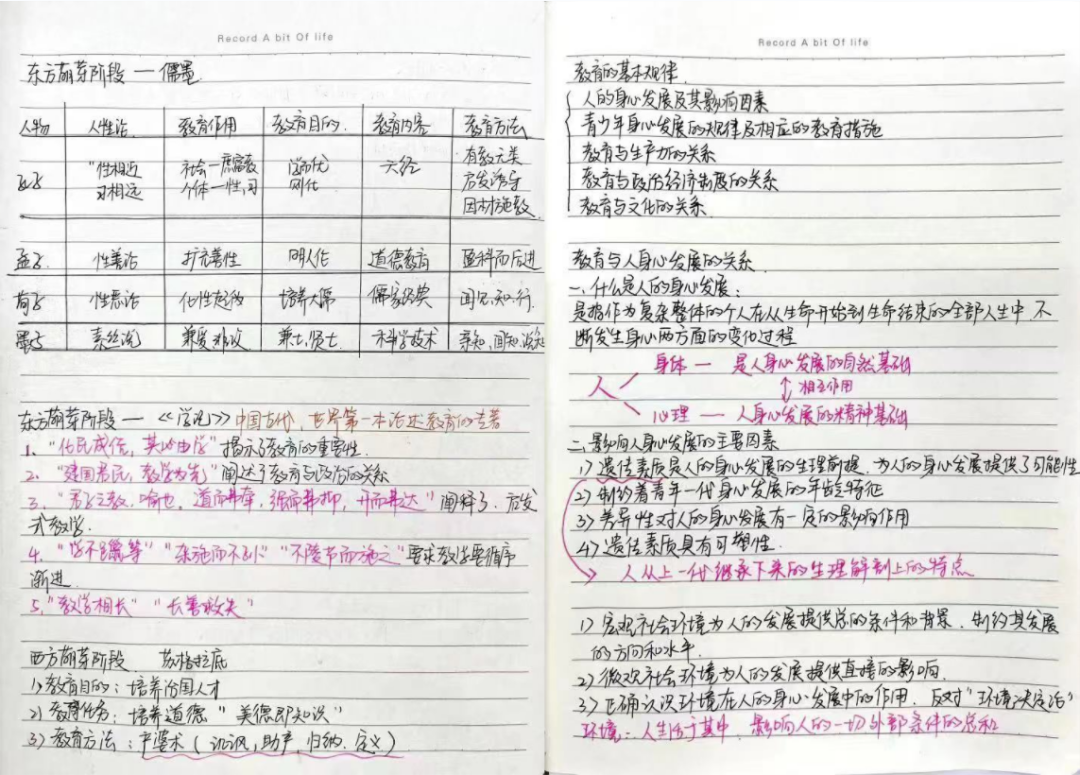 Record A bit Of life
东方萌芽阶段 — 儒墨
人物 人性论 教育作用 教育目的 教育内容 教育方法
孔子 "性相近 习相远" 社会—庶富教 个体—性,习 学而优则仕 六经 有教无类 启发诱导 因材施教
孟子 性善论 扩充善性 明人伦 道德教育 盈科而后进
荀子 性恶论 化性起伪 培养大儒 儒家经典 闻,见,知,行
墨子 素丝说 兼爱非攻 兼士,贤士 科学技术 亲知,闻知,说知
东方萌芽阶段 — 《学记》中国古代、世界第一本论述教育的专著
1、"化民成俗,其必由学"揭示了教育的重要性.
2、"建国君民,教学为先"阐述了教育与政治的关系
3、"君子之教,喻也,道而弗牵,强而弗抑,开而弗达"阐释了启发
式教学.
4、"学不躐等""杂施而不孙""不陵节而施之"要求教学要循序
渐进
5、"教学相长""长善救失"
西方萌芽阶段 苏格拉底
1)教育目的:培养治国人才
2)教育任务:培养道德"美德即知识"
3)教育方法:产婆术(讥讽,助产,归纳.定义)
Record A bit Of life
教育的基本规律.
人的身心发展及其影响因素
青少年身心发展的规律及相应的教育措施
教育与生产力的关系
教育与政治经济制度的关系
教育与文化的关系
教育与人身心发展的关系.
一.什么是人的身心发展:
是指作为复杂整体的个人在从生命开始到生命结束的全部人生中,不
断发生身心两方面的变化过程
身体 — 是人身心发展的自然基础
人 相互作用
心理 — 人身心发展的精神基础
二.影响人身心发展的主要因素
1)遗传素质是人的身心发展的生理前提,为人的身心发展提供了可能性
2)制约着青年一代身心发展的年龄特征
3)差异性对人的身心发展有一定的影响作用
4)遗传素质具有可塑性.
人从上一代继承下来的生理解剖上的特点
1)宏观社会环境为人的发展提供总的条件和背景.制约其发展
的方向和水平.
2)微观社会环境为人的发展提供直接的影响.
3)正确认识环境在人的身心发展中的作用.反对"环境决定论"
环境:人生活于其中,影响人的一切外部条件的总和